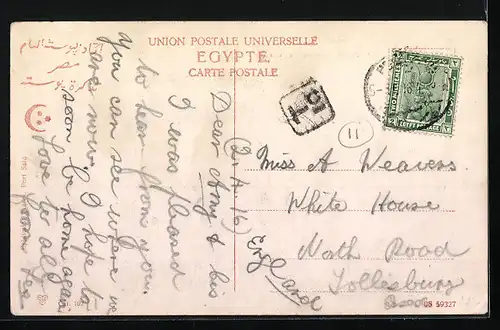 UNION POSTALE UNIVERSELLE
EGYPTE.
CARTE POSTALE
مصر
(21.4.16)
Dear Amy & bis
I was pleased
to hear from you.
you can see where we
are now. I hope to
soon be home again
Love to all
from
Miss A Weavers
White House
North Road
Tollesbury
Essex
England
11
Port Said
OS 59327